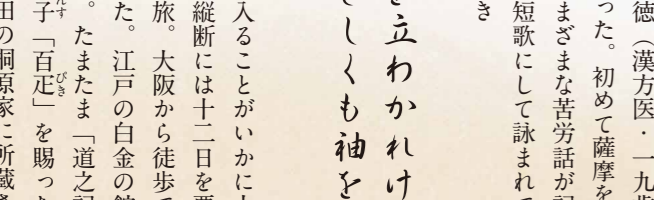 徳（漢方医・一九歳
った。初めて薩摩を
まざまな苦労話が記
短歌にして詠まれて
き
立わかれけ
しくも袖を
入ることがいかに
縦断には十二日を要
旅。大阪から徒歩で
た。江戸の白金の
。たまたま「道之記
子「百疋」を賜った
田の桐原家に所蔵さ